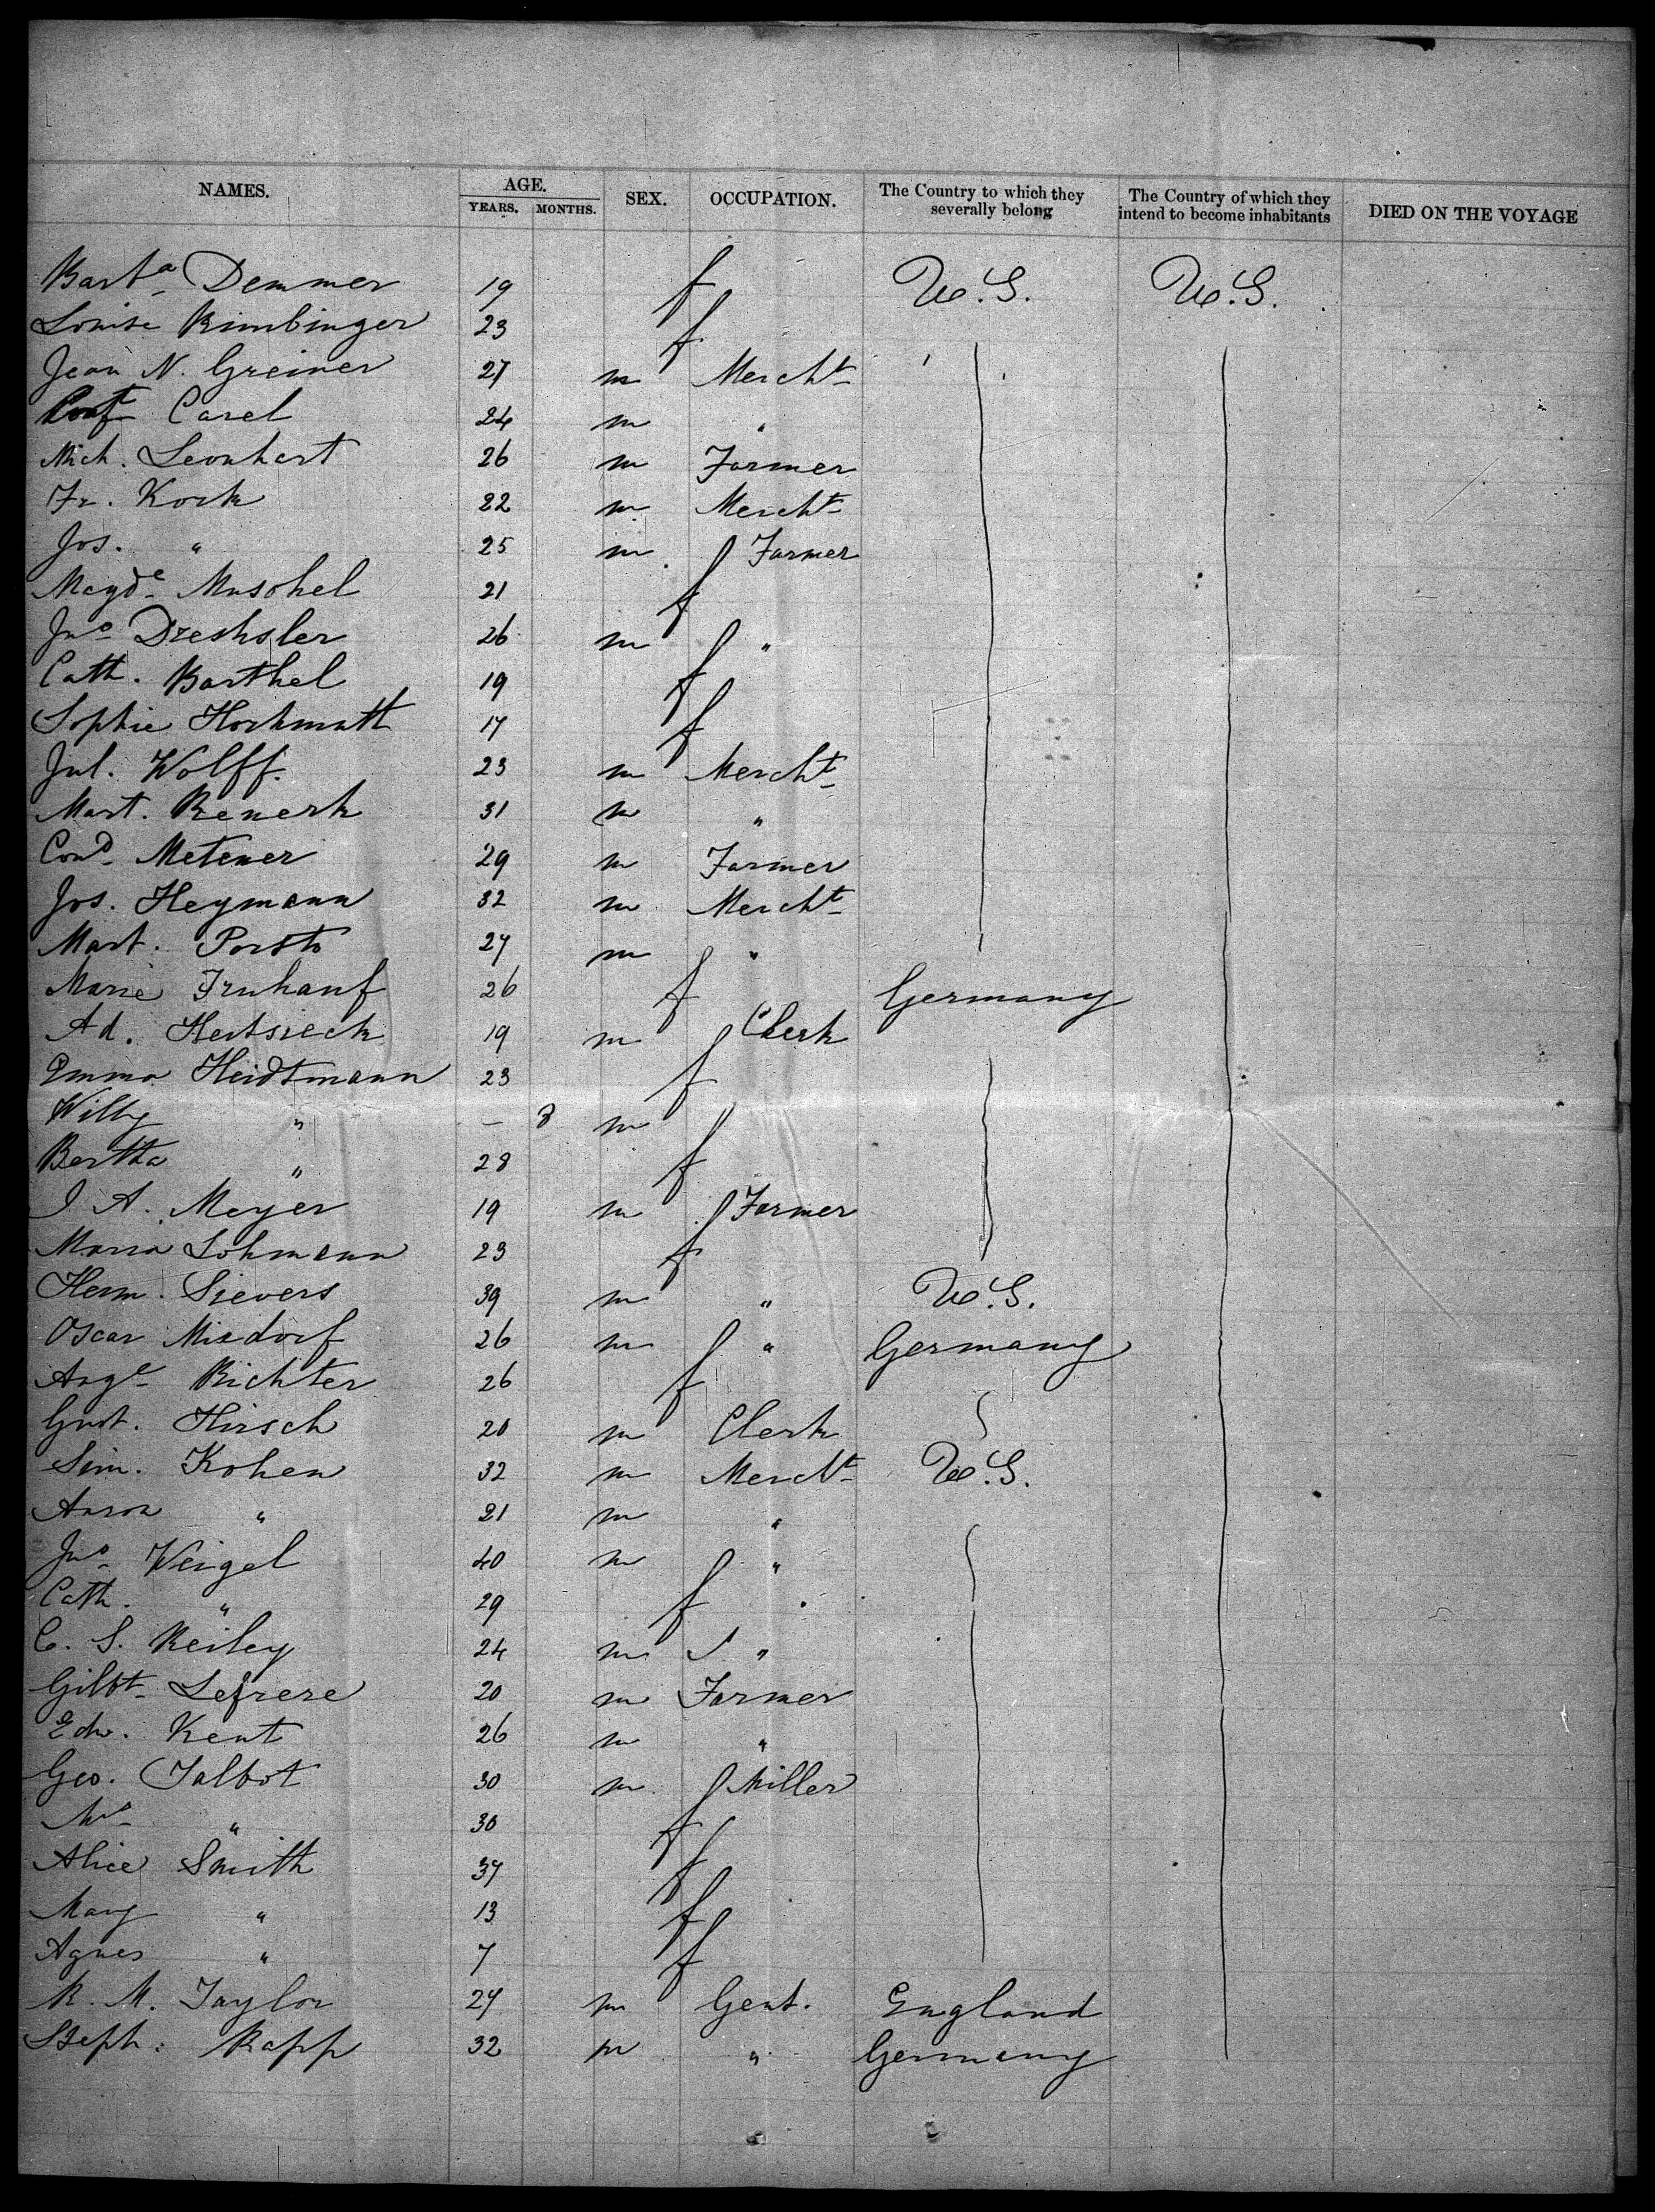 NAMES. AGE. YEARS. MONTHS. SEX. OCCUPATION. The Country to which they severally belong The Country of which they intend to become inhabitants DIED ON THE VOYAGE
Barba Demmer 19 f U.S. U.S.
Louise Rimbinger 23 f
Jean N. Greiner 27 m Mercht
Carel 24 m "
Mich. Leonhart 26 m Farmer
Fr. Kock 22 m Mercht
Jos. " 25 m Farmer
Magde Muschel 21 f
Jno Drechsler 26 m "
Cath. Barthel 19 f
Sophie Hochmuth 17 f
Jul. Wolff. 23 m Mercht
Mart. 31 m "
Cond Metzner 29 m Farmer
Jos. Heymann 32 m Mercht
Mart. 27 m "
Marie Fruhauf 26 f Germany
Ad. Hertsieck 19 m Clerk
Emma Heidtmann 23 f
Willy " – 8 m
Bertha " 28 f
J A. Meyer 19 m Farmer
Maria Lohmann 23 f
Herm. Sievers 39 m " U.S.
Oscar Misdorf 26 m " Germany
Auge Richter 26 f
Gust. Hirsch 20 m Clerk
Sim. Kohen 32 m Mercht U.S.
Aaron " 21 m "
Jno Weigel 40 m "
Cath. " 29 f
C. S. Reiley 24 m "
Gilbt Lefrere 20 m Farmer
Edw. Kent 26 m "
Geo. Talbot 30 m Miller
Mrs " 30 f
Alice Smith 37 f
Mary " 13 f
Agnes " 7 f
R. M. Taylor 27 m Gent. England
Steph. Rapp 32 m " Germany